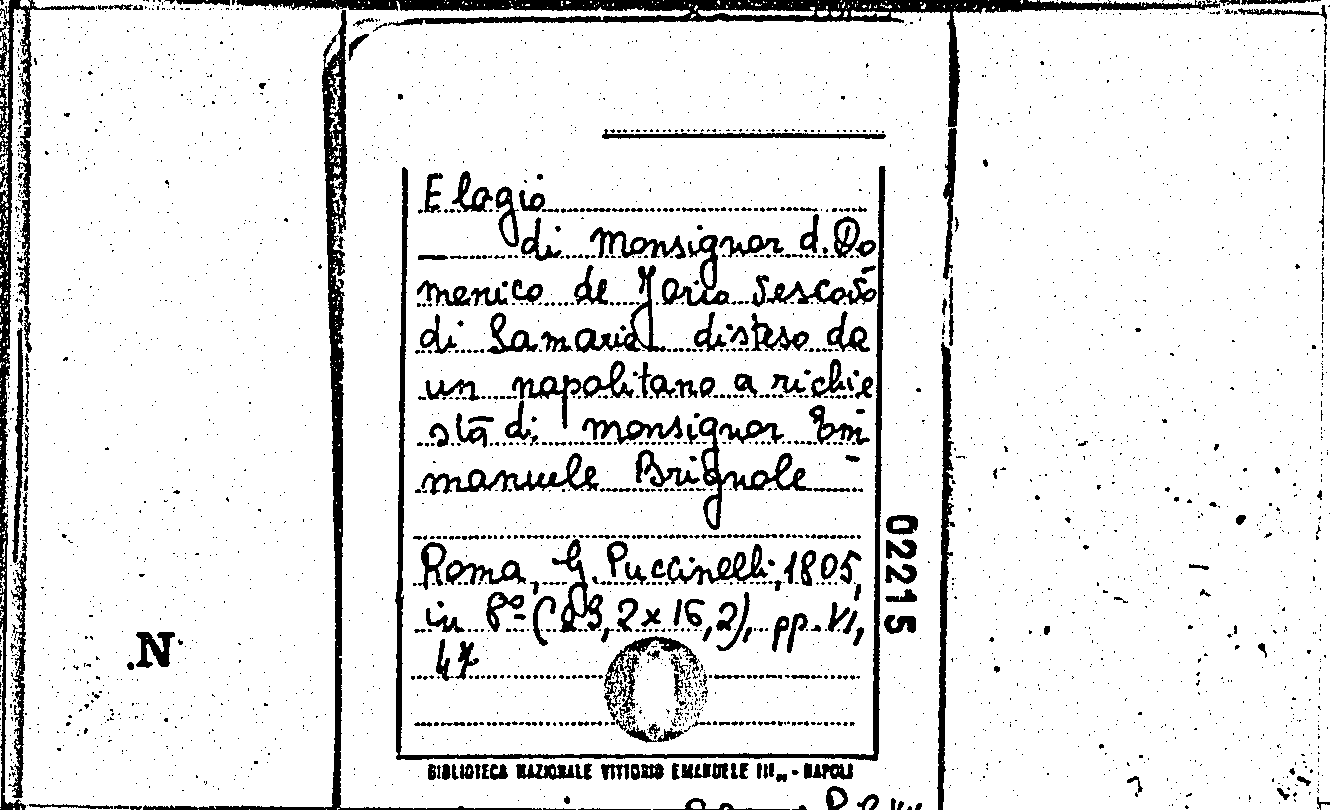 Elogio
di Monsignor d. Do
menico de Jorio Vescovo
di Samaria disteso da
un napolitano a richie
sta di monsignor Em
manuele Brignole -
Roma, G. Puccinelli, 1805,
in 8º (23,2 x 16,2), pp. VI,
47
02215
.N
BIBLIOTECA NAZIONALE VITTORIO EMANUELE III„ - NAPOLI